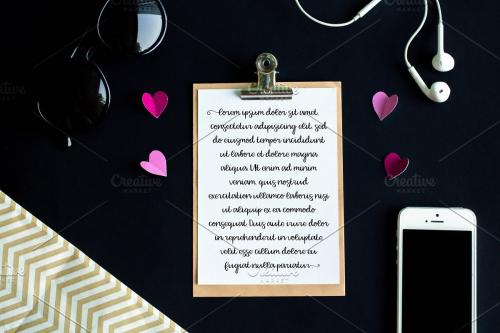 Lorem ipsum dolor sit amet
consectetur adipisicing elit, sed
do eiusmod tempor incididunt
ut labore et dolore magna
aliqua. Ut enim ad minim
veniam, quis nostrud
exercitation ullamco laboris nisi
ut aliquip ex ea commodo
consequat. Duis aute irure dolor
in reprehenderit in voluptate
velit esse cillum dolore eu
fugiat nulla pariatur
Creative
MARKET